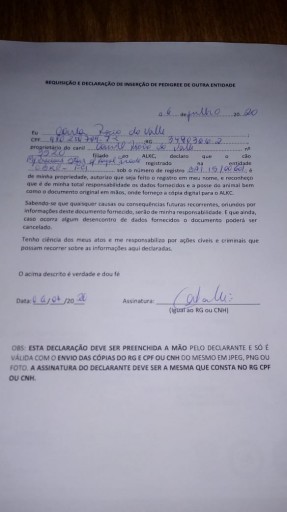 REQUISIÇÃO E DECLARAÇÃO DE INSERÇÃO DE PEDIGREE DE OUTRA ENTIDADE
06 julho 20 20
Eu do Valle
CPF , RG
proprietário do canil , nº
filiado ao ALKC, declaro que o cão
registrado na entidade
, sob o número de registro
de minha propriedade, autorizo que seja feito o registro em meu nome, e reconheço
que é de minha total responsabilidade os dados fornecidos e a posse do animal bem
como o documento original em mãos, onde forneço a cópia digital para o ALKC.
Sabendo-se que quaisquer causas ou consequências futuras recorrentes, oriundos por
informações deste documento fornecido, serão de minha responsabilidade. E que ainda,
caso ocorra algum desencontro de dados fornecidos o documento poderá ser
cancelado.
Tenho ciência dos meus atos e me responsabilizo por ações cíveis e criminais que
possam recorrer sobre as informações aqui declaradas.
O acima descrito é verdade e dou fé
Data: /20 20 Assinatura:
(igual ao RG ou CNH)
OBS: ESTA DECLARAÇÃO DEVE SER PREENCHIDA A MÃO PELO DECLARANTE E SÓ É
VÁLIDA COM O ENVIO DAS CÓPIAS DO RG E CPF OU CNH DO MESMO EM JPEG, PNG OU
FOTO. A ASSINATURA DO DECLARANTE DEVE SER A MESMA QUE CONSTA NO RG CPF
OU CNH.